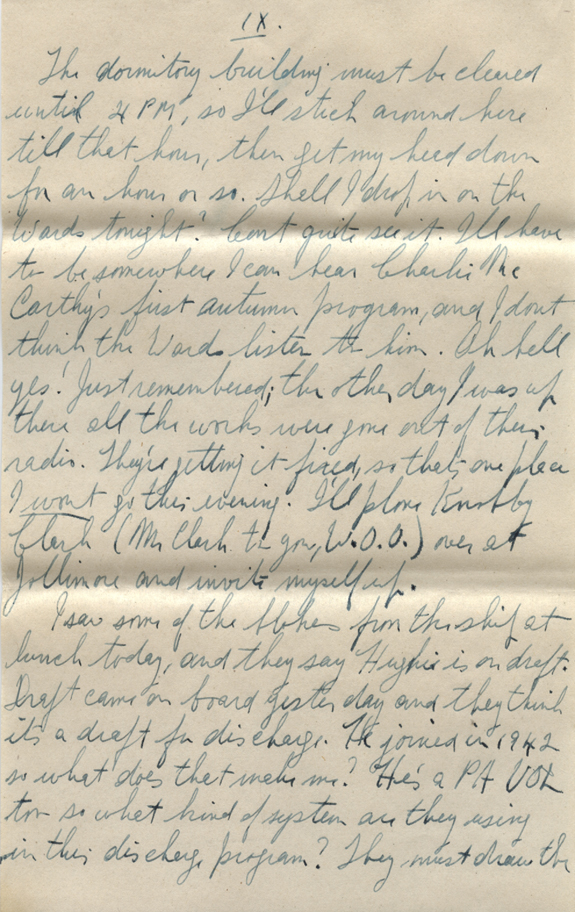 IX.
The dormitory building must be cleared
until 4 PM, so I'll stick around here
till that hour, then get my head down
for an hour or so. Shall I drop in on the
Wards tonight? Can't quite see it. I'll have
to be somewhere I can hear Charlie Mc
Carthy's first autumn program, and I don't
think the Wards listen to him. Oh hell
yes! Just remembered; the other day I was up
there all the works were gone out of their
radio. They're getting it fixed, so that's one place
I wont go this evening. I'll phone Knobby
Clark (Mr Clark to you, W.O.O.) over at
Jollimore and invite myself up.
I saw some of the blokes from the ship at
lunch today, and they say Hughie is on draft.
Draft came on board yesterday and they think
it's a draft for discharge. He joined in 1942
so what does that make me? He's a PA VOL
too so what kind of system are they using
in this discharge program? They must draw the